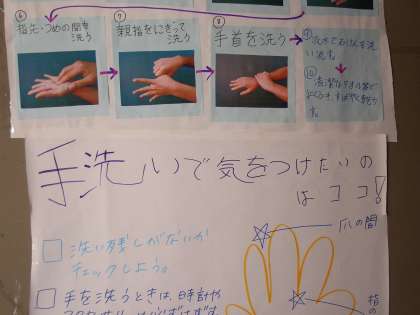 ⑥
指先・つめの間を
洗う
⑦
親指をにぎって
洗う
⑧
手首を洗う
⑨
流水で石けんを洗
い流す。
⑩
清潔なタオル等で
よくふき、すばやく乾かす。
手洗いで気をつけたいの
はココ!
洗い残しがないか
チェックしよう。
手を洗うときは、時計や
爪の間
指の